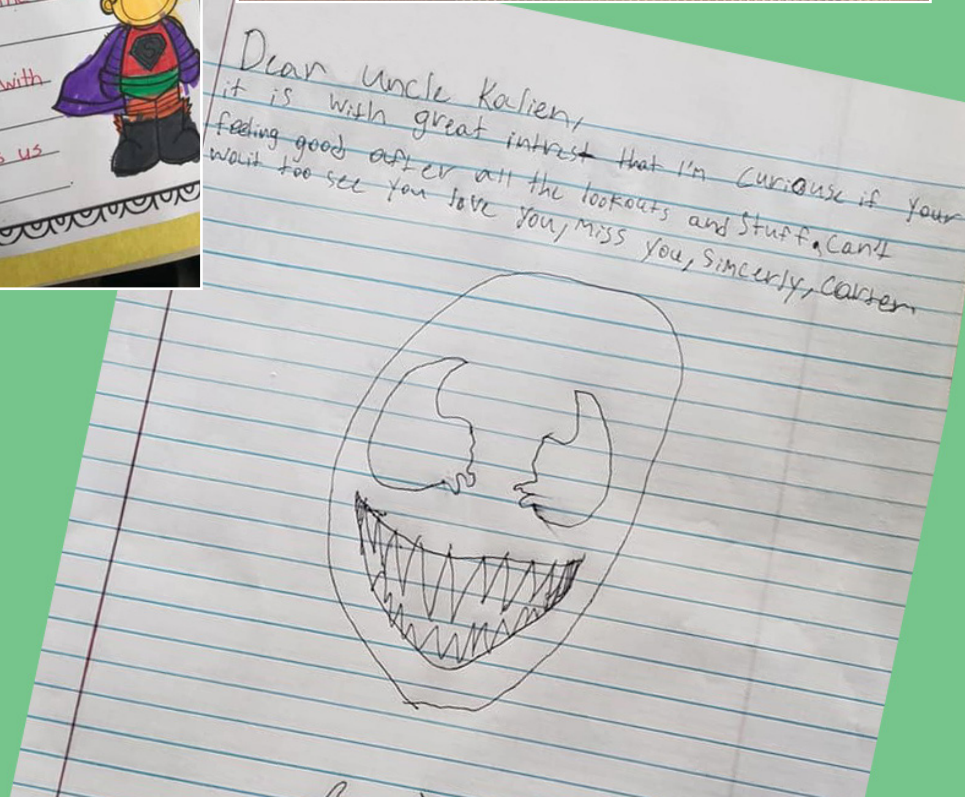 with
us
S
Dear uncle Kalien,
it is with great intrest that I'm curiouse if your
feeling good after all the lookouts and stuff, can't
wait too see you love you, miss you, sincerly, Carsen